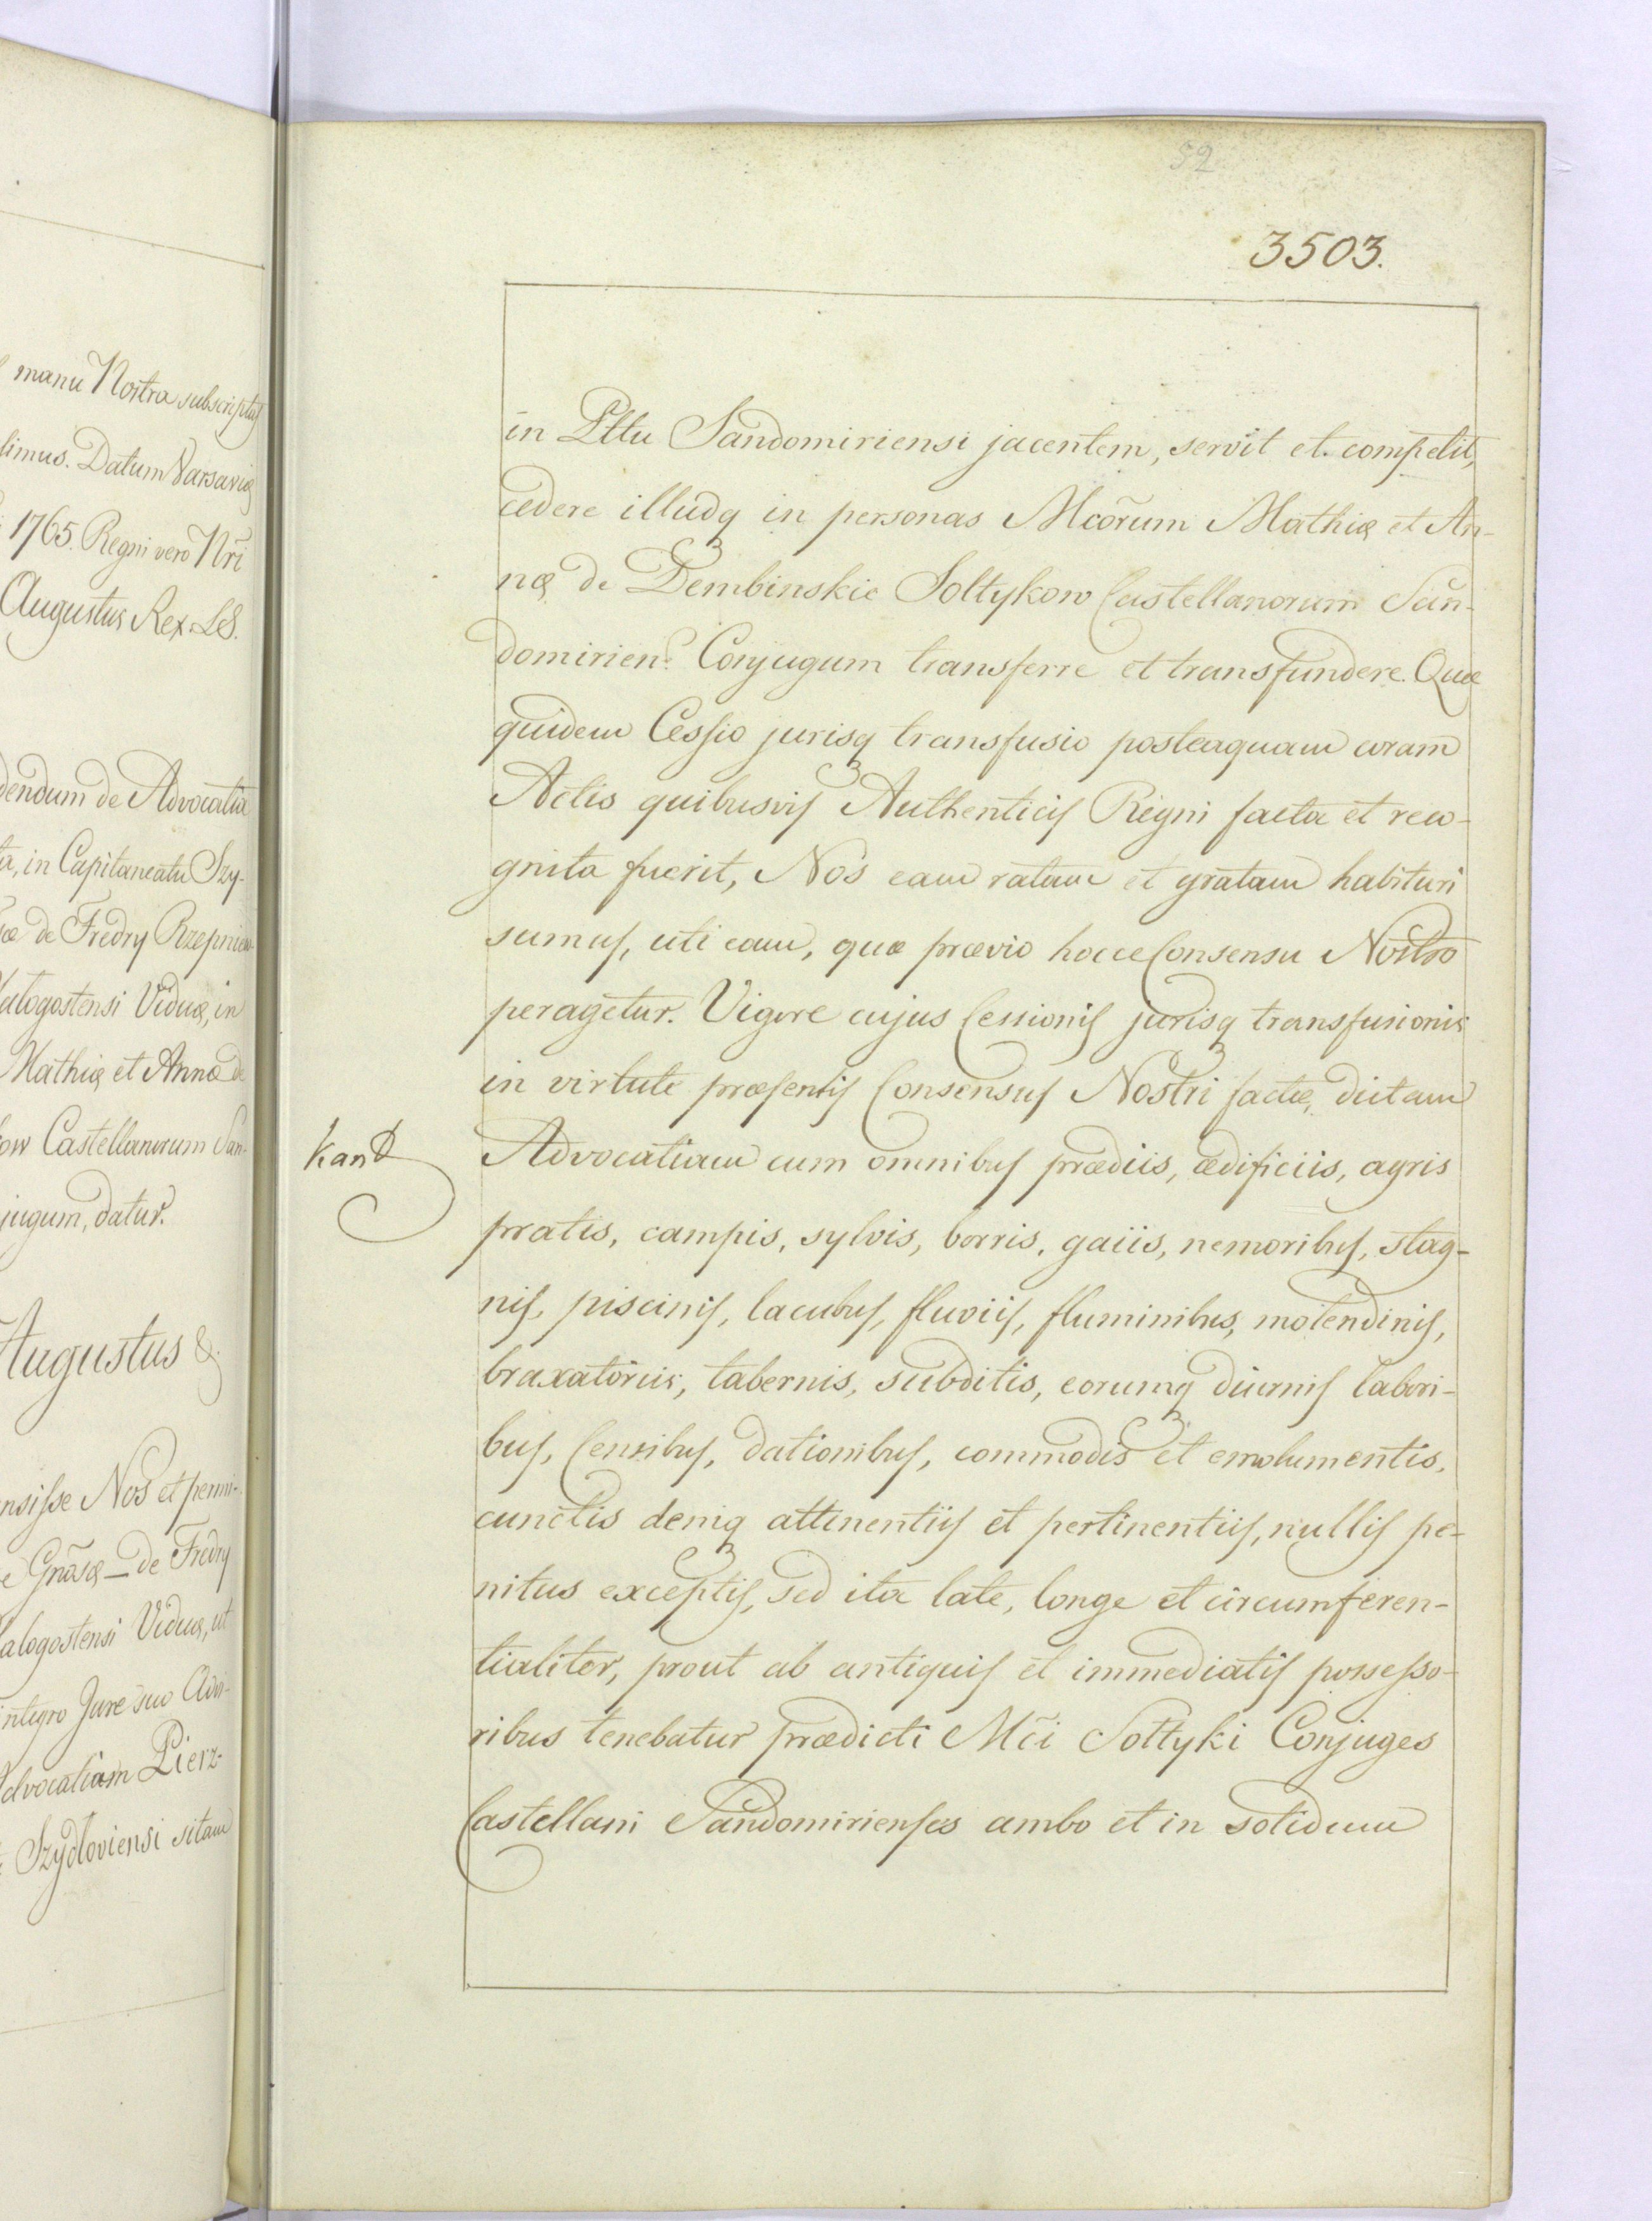 manu Nostra subscriptas
limus. Datum Varsaviæ
1765. Regni vero Nri
Augustus Rex. LS.
dendum de Advocatia
ta, in Capitaneatu Szy-
de Fredry Rzepnicw
alogostensi Viduæ, in
Mathiæ et Annæ de
ow Castellanorum San-
jugum, datur.
Augustus &
nsisse Nos et permi-
e Gnosæ de Fredry
alogostensi Viduæ, ut
integro Jure suo Advo-
dvocatiam Pierz-
Szydloviensi sitam
52
3503.
in Pttu Sandomiriensi jacentem, servit et competit,
cedere illudq in personas Mcorum Mathiæ et An-
næ de Dembinskie Soltykow Castellanorum San-
domirien: Conjugum transferre et transfundere. Quæ
quidem Cessio jurisq transfusio posteaquam coram
Actis quibusvis Authenticis Regni facta et reco-
gnita fuerit, Nos eam ratam et gratam habituri
sumus, uti eam, quæ prævio hocce Consensu Nostro
peragetur. Vigore cujus Cessionis jurisq transfusionis
in virtute præsentis Consensus Nostri factæ, dictam
Kand
Advocatiam cum omnibus prædiis, ædificiis, agris
pratis, campis, sylvis, borris, gaiis, nemoribus, stag-
nis, piscinis, lacubus, fluviis, fluminibus, molendinis,
braxatoriis, tabernis, subditis, eorumq diurnis labori-
bus, Censibus, dationibus, commodis et emolumentis,
cunctis deniq attinentiis et pertinentiis, nullis pe-
nitus exceptis, sed ita late, longe et circumferen-
tialiter, prout ab antiquis et immediatis possesso-
ribus tenebatur prædicti Mci Sołtyki Conjuges
Castellani Sandomirienses ambo et in solidum